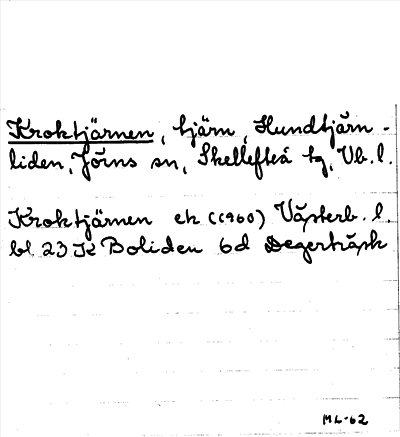 Kroktjärnen, tjärn, Hundtjärn-
liden, Jörns sn, Skellefteå tg, Vb. l.
Kroktjärnen ek (1960) Västerb. l.
bl 23 K Boliden 6d Degerträsk
ML-62